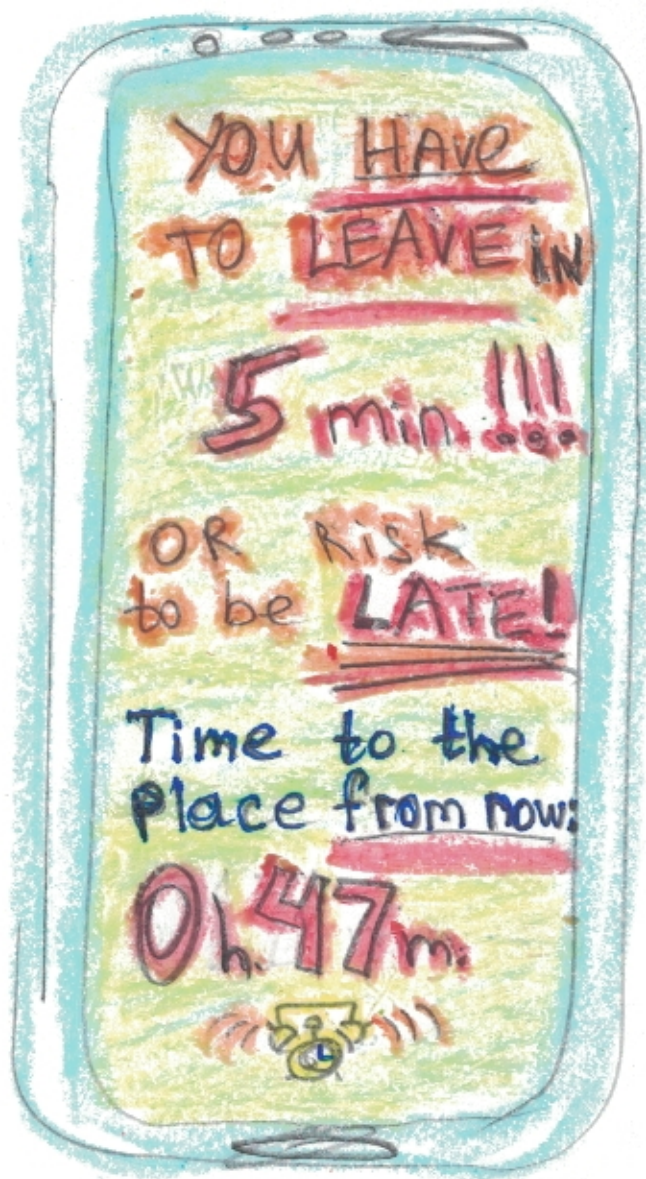 YOU HAVE
TO LEAVE IN
5 min. !!!
OR RISK
to be LATE!
Time to the
Place from now:
0h. 47m.